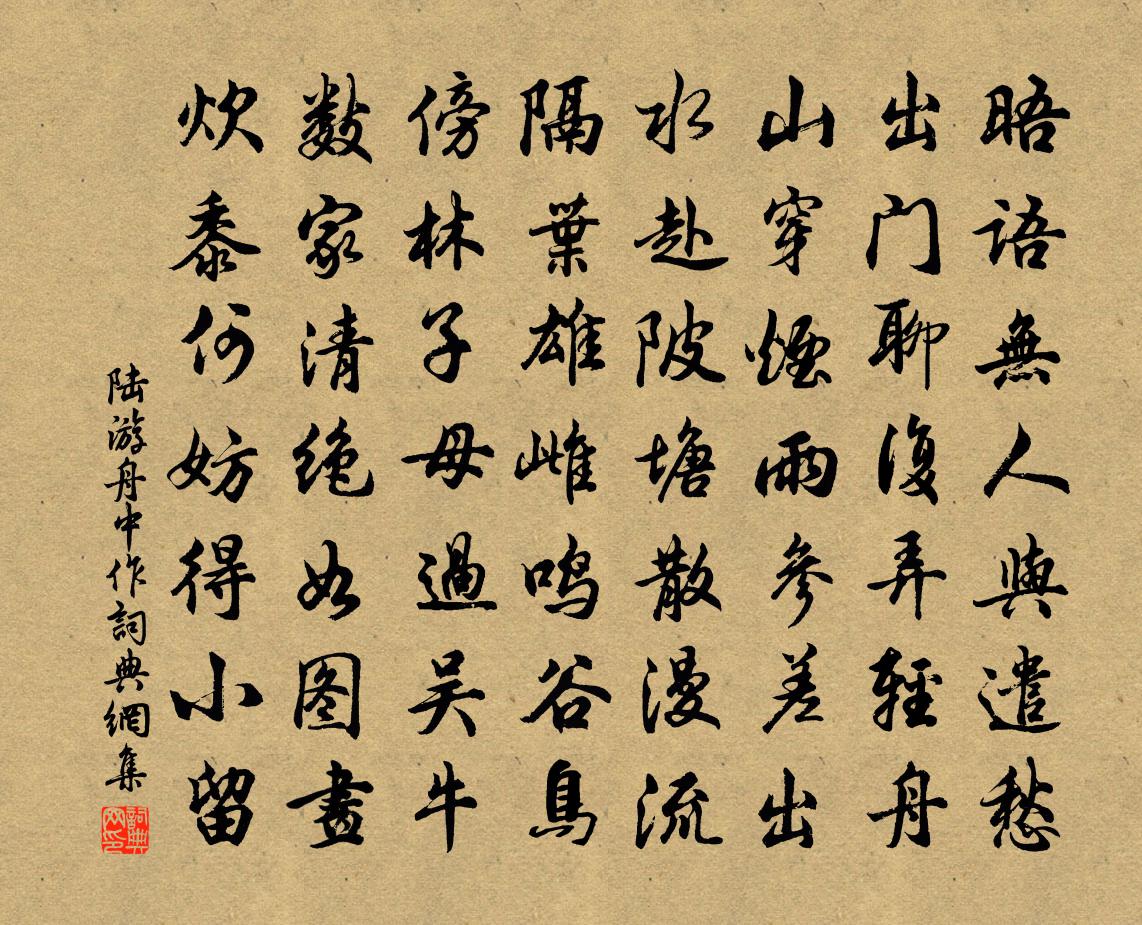 晤语無人與遣愁
出门聊復弄輕舟
山穿煙雨參差出
水赴陂塘散漫流
隔葉雄雌鸣谷鳥
傍林子母過吴牛
数家清绝如图畫
炊黍何妨得小留
陆游舟中作詞典網集
詞典
网印